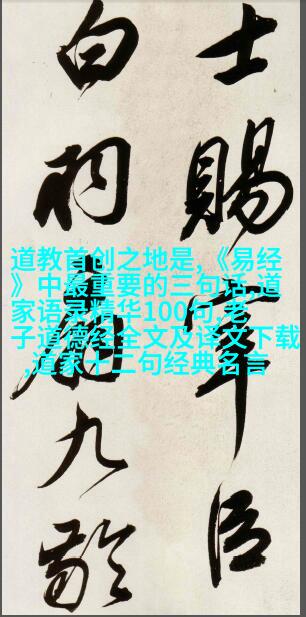 士賜宰臣
白羽扇九齡
道教首创之地是,《易经
》中最重要的三句话,道
家语录精华100句,老
子道德经全文及译文下载
,道家十二句经典名言